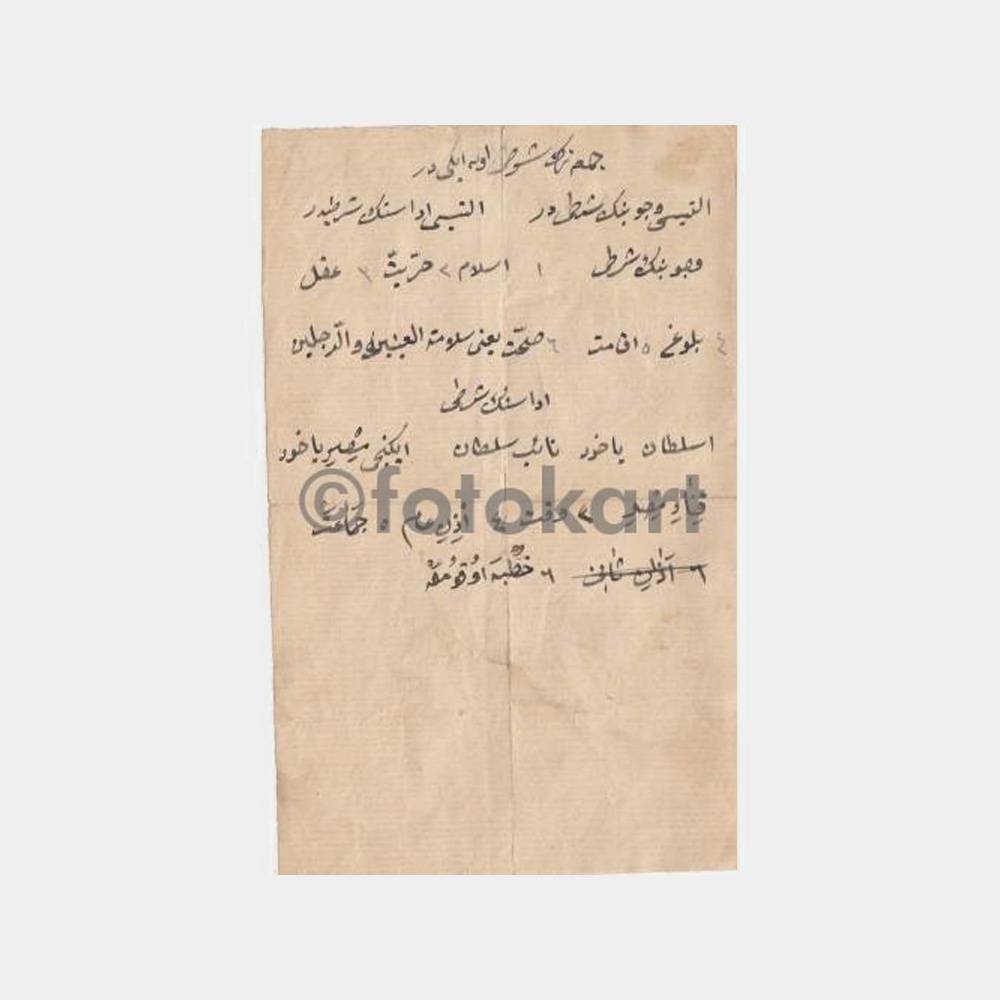 جمعه نڭ شروطی اون ایکی در
التیسی وجوبنك شرطی در التیسی اداسنك شرطیدر
وجوبنك شرطی ١ اسلام ٢ حرّیت ٣ عقل
٤ بلوغ ٥ اقامت ٦ صحّت یعنی سلامة العینین والرّجلین
اداسنك شرطی
١ سلطان یاخود نائب سلطان ایكنجی مِصِر یاخود
فِنَاءِ مصر ٣ وقت ٤ اِذِنِ عام ٥ جَمَاعَتْ
٦ خُطْبَه اوُقوُمَقْ
©fotokart